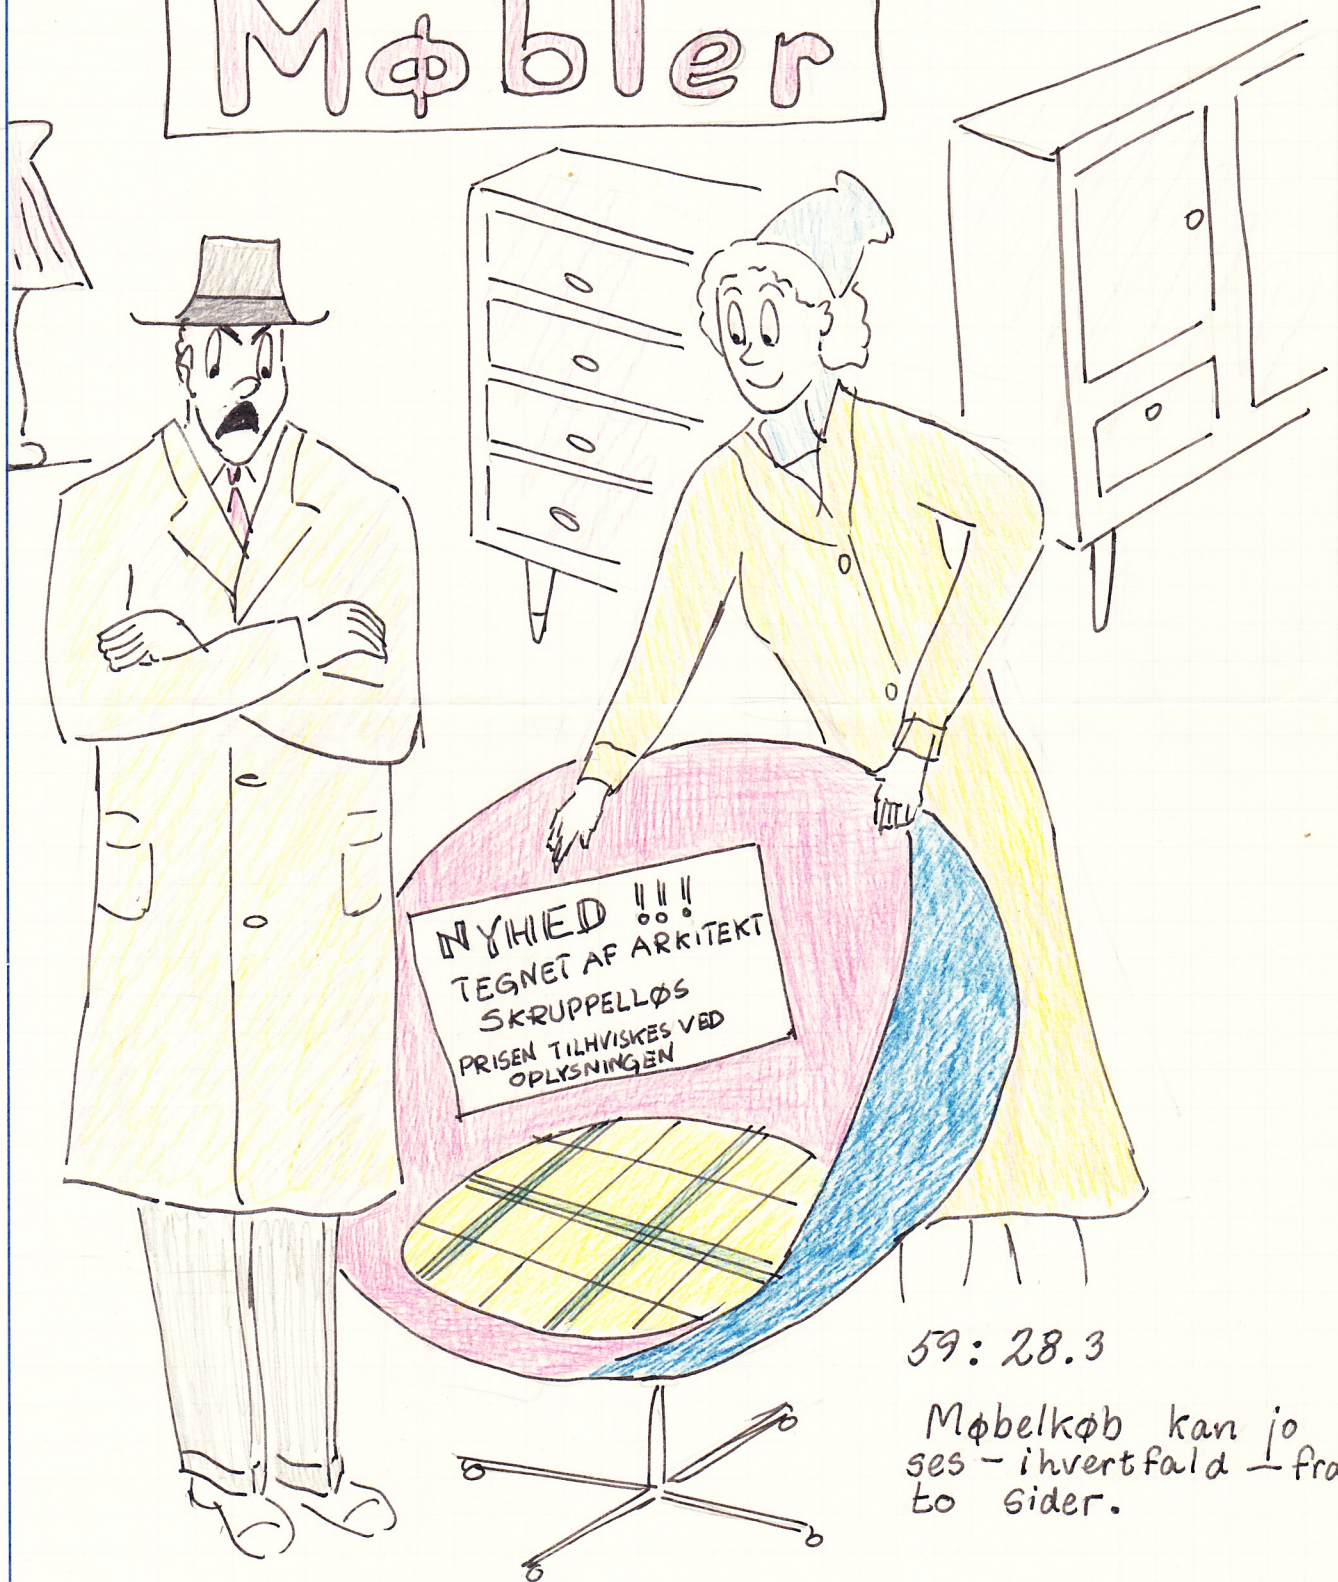 Møbler
NYHED !!!
TEGNET AF ARKITEKT
SKRUPPELLØS
PRISEN TILHVISKES VED
OPLYSNINGEN
59: 28.3
Møbelkøb kan jo
ses - ihvertfald - fra
to sider.